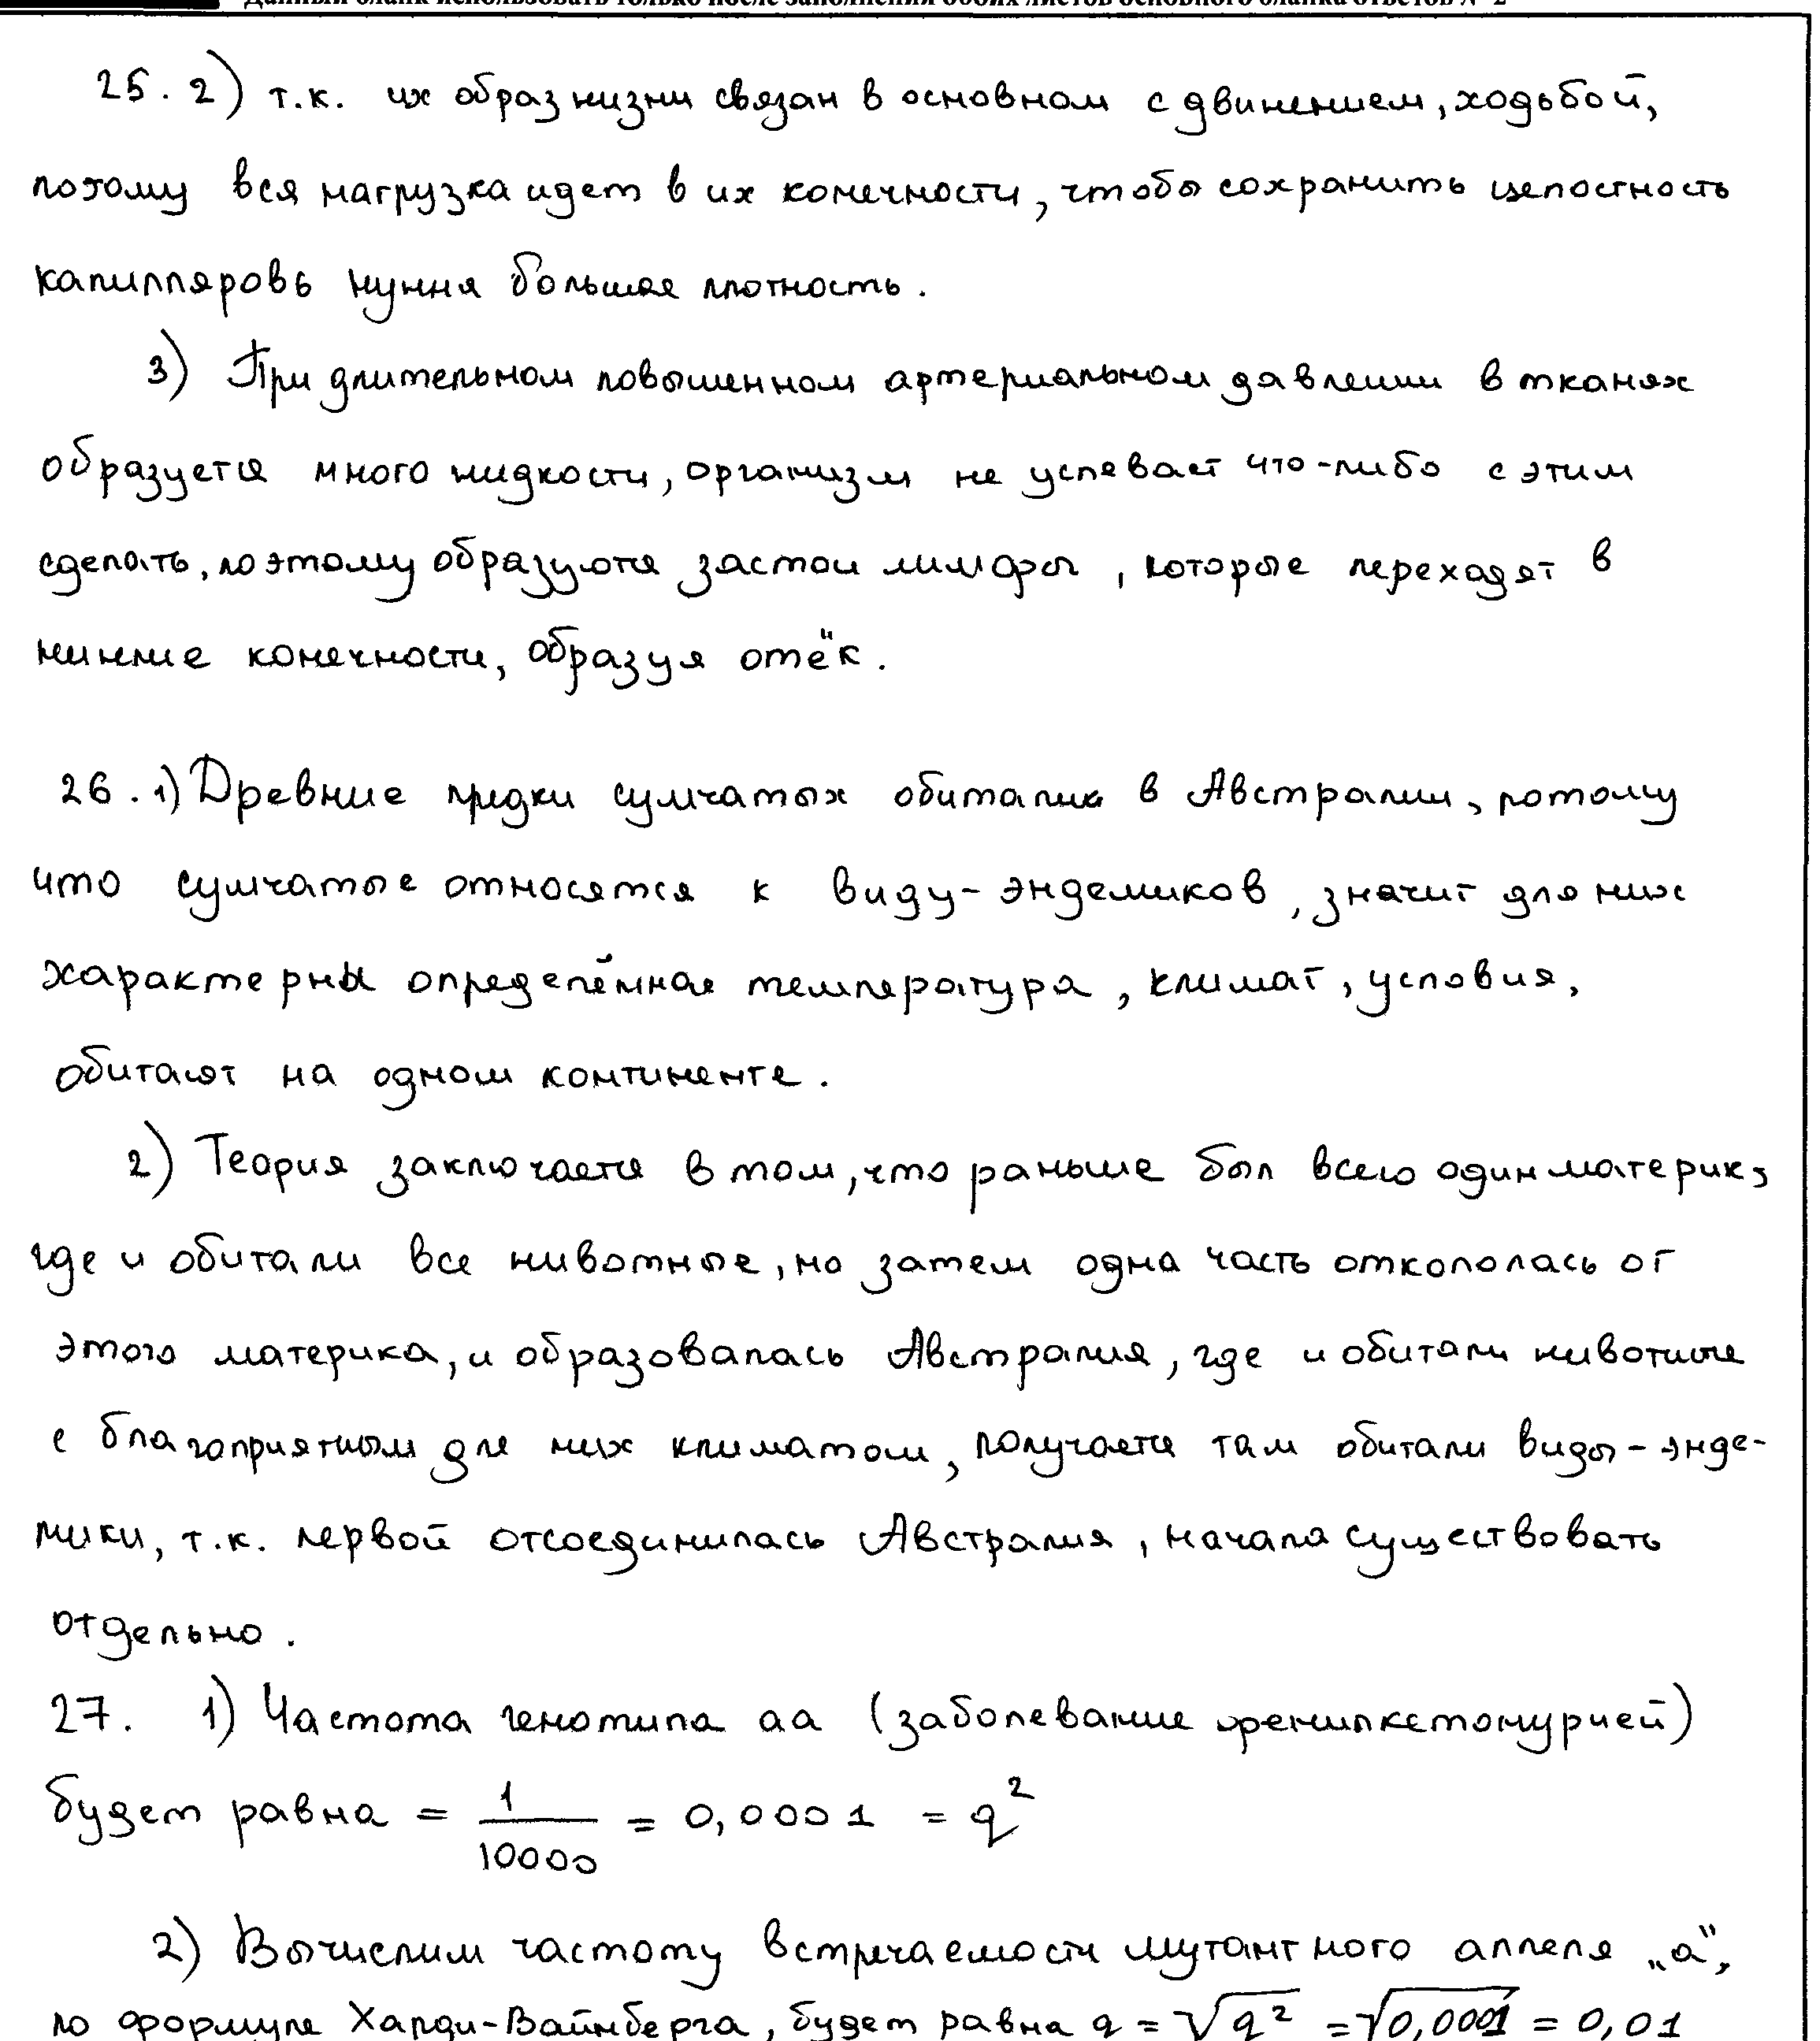 Данный бланк использовать только после заполнения обоих листов основного бланка ответов № 2
25. 2) т.к. их образ жизни связан в основном с движением, ходьбой,
потому вся нагрузка идет в их конечности, чтобы сохранить целостность
капилляровь нужня большая плотность.
3) При длительном повышенном артериальном давлении в тканях
образуется много жидкости, организм не успевает что-либо с этим
сделать, поэтому образуются застои лимфы, которые переходят в
нижние конечности, образуя отёк.
26. 1) Древние предки сумчатых обитали в Австралии, потому
что сумчатые относятся к виду-эндемиков, значит для них
характерны определённая температура, климат, условия,
обитают на одном континенте.
2) Теория заключается в том, что раньше был всего один материк,
где и обитали все животные, но затем одна часть откололась от
этого материка, и образовалась Австралия, где и обитали животные
с благоприятным для них климатом, получается там обитали виды-энде-
мики, т.к. первой отсоединилась Австралия, начала существовать
отдельно.
27. 1) Частота генотипа аа (заболевание фенилкетонурией)
будет равна = 1/10000 = 0,0001 = q²
2) Вычислим частоту встречаемости мутантного аллеля „а",
по формуле Харди-Вайнберга, будет равна q = √q² = √0,0001 = 0,01